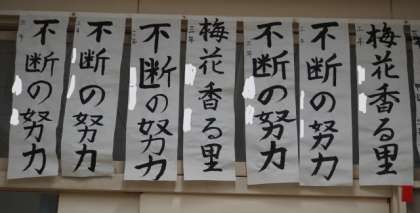 梅花香る里
不断の努力
不断の努力
梅花香る里
三年
不断の努力
不断の努力
不断の努力